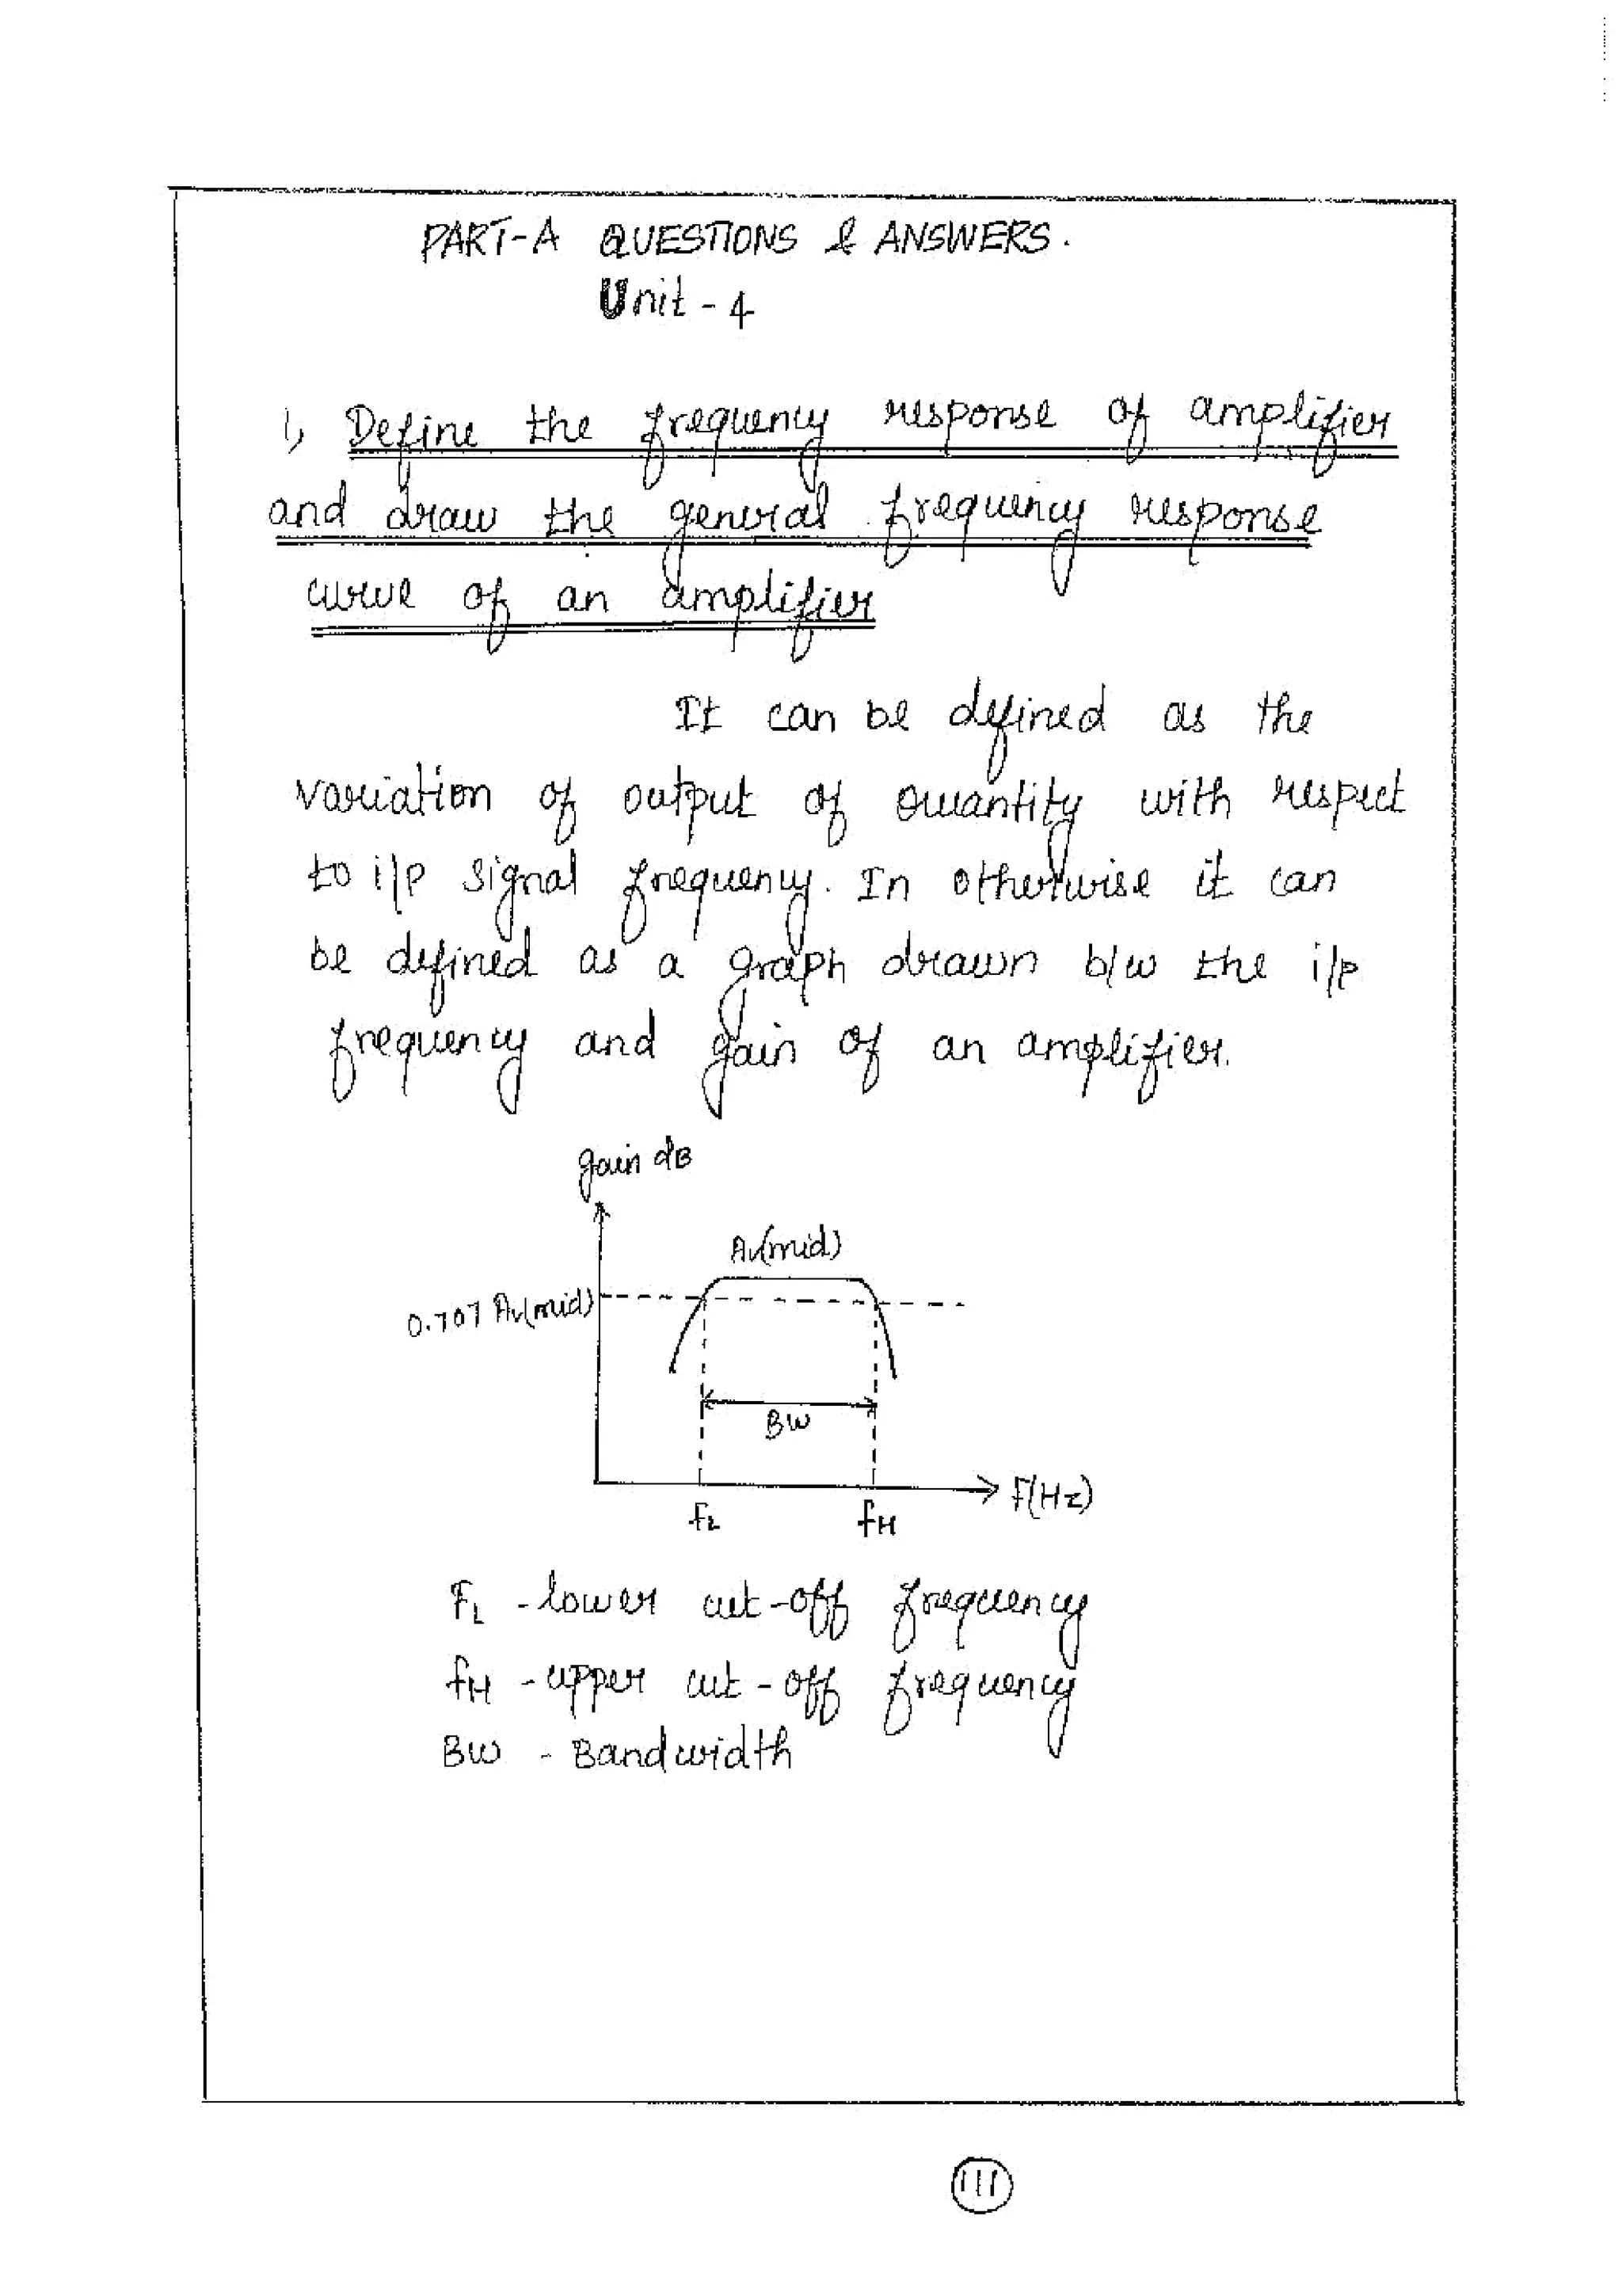 PART-A QUESTIONS & ANSWERS.
Unit - 4
1, Define the frequency response of amplifier
and draw the general frequency response
curve of an amplifier
It can be defined as the
variation of output of quantity with respect
to i/p signal frequency. In otherwise it can
be defined as a graph drawn b/w the i/p
frequency and gain of an amplifier.
gain dB
Av(mid)
0.707 Av(mid)
BW
F(Hz)
fL fH
FL - lower cut-off frequency
fH - upper cut-off frequency
BW - Bandwidth
111